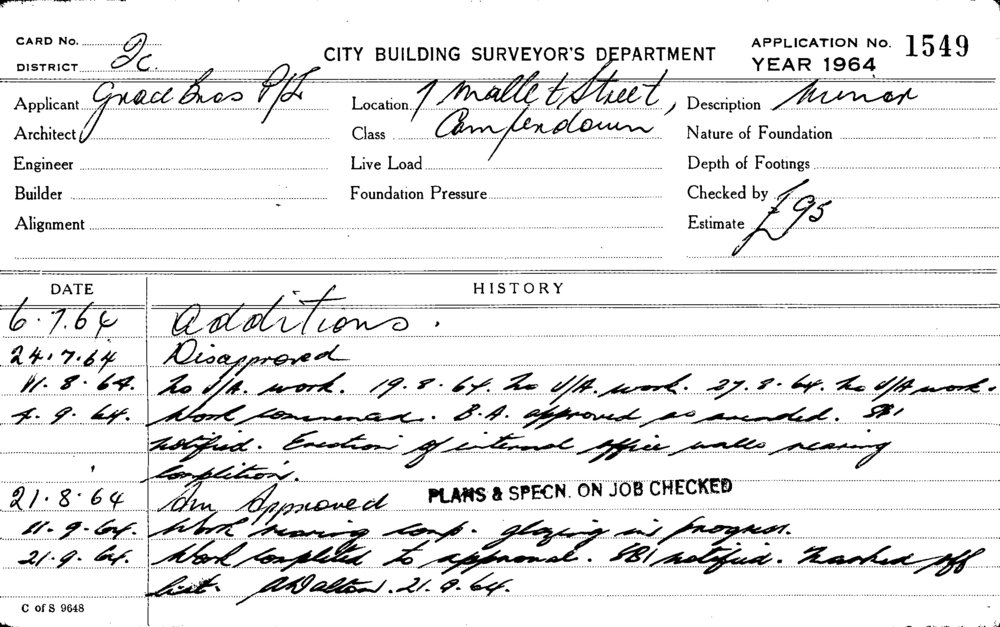 CARD No. 2c.
DISTRICT
CITY BUILDING SURVEYOR'S DEPARTMENT
APPLICATION No. 1549
YEAR 1964
Applicant Grace Bros P/L
Location 1 Mallett Street,
Description Minor
Architect
Class Camperdown
Nature of Foundation
Engineer
Live Load
Depth of Footings
Builder
Foundation Pressure
Checked by
Alignment
Estimate £95
DATE HISTORY
6.7.64 Additions.
24.7.64 Disapproved
11.8.64. No U/A. work. 19.8.64. No U/A. work. 27.8.64. No U/A work.
4.9.64. Work commenced. B.A. approved as amended. SBI
notified. Erection of internal office walls nearing
complition.
21.8.64 Am Approved PLANS & SPECN. ON JOB CHECKED
11.9.64. Work nearing comp. glazing in progress.
21.9.64. Work completed to approval. SBI notified. Marked off
list. ADalton. 21.9.64.
C of S 9648